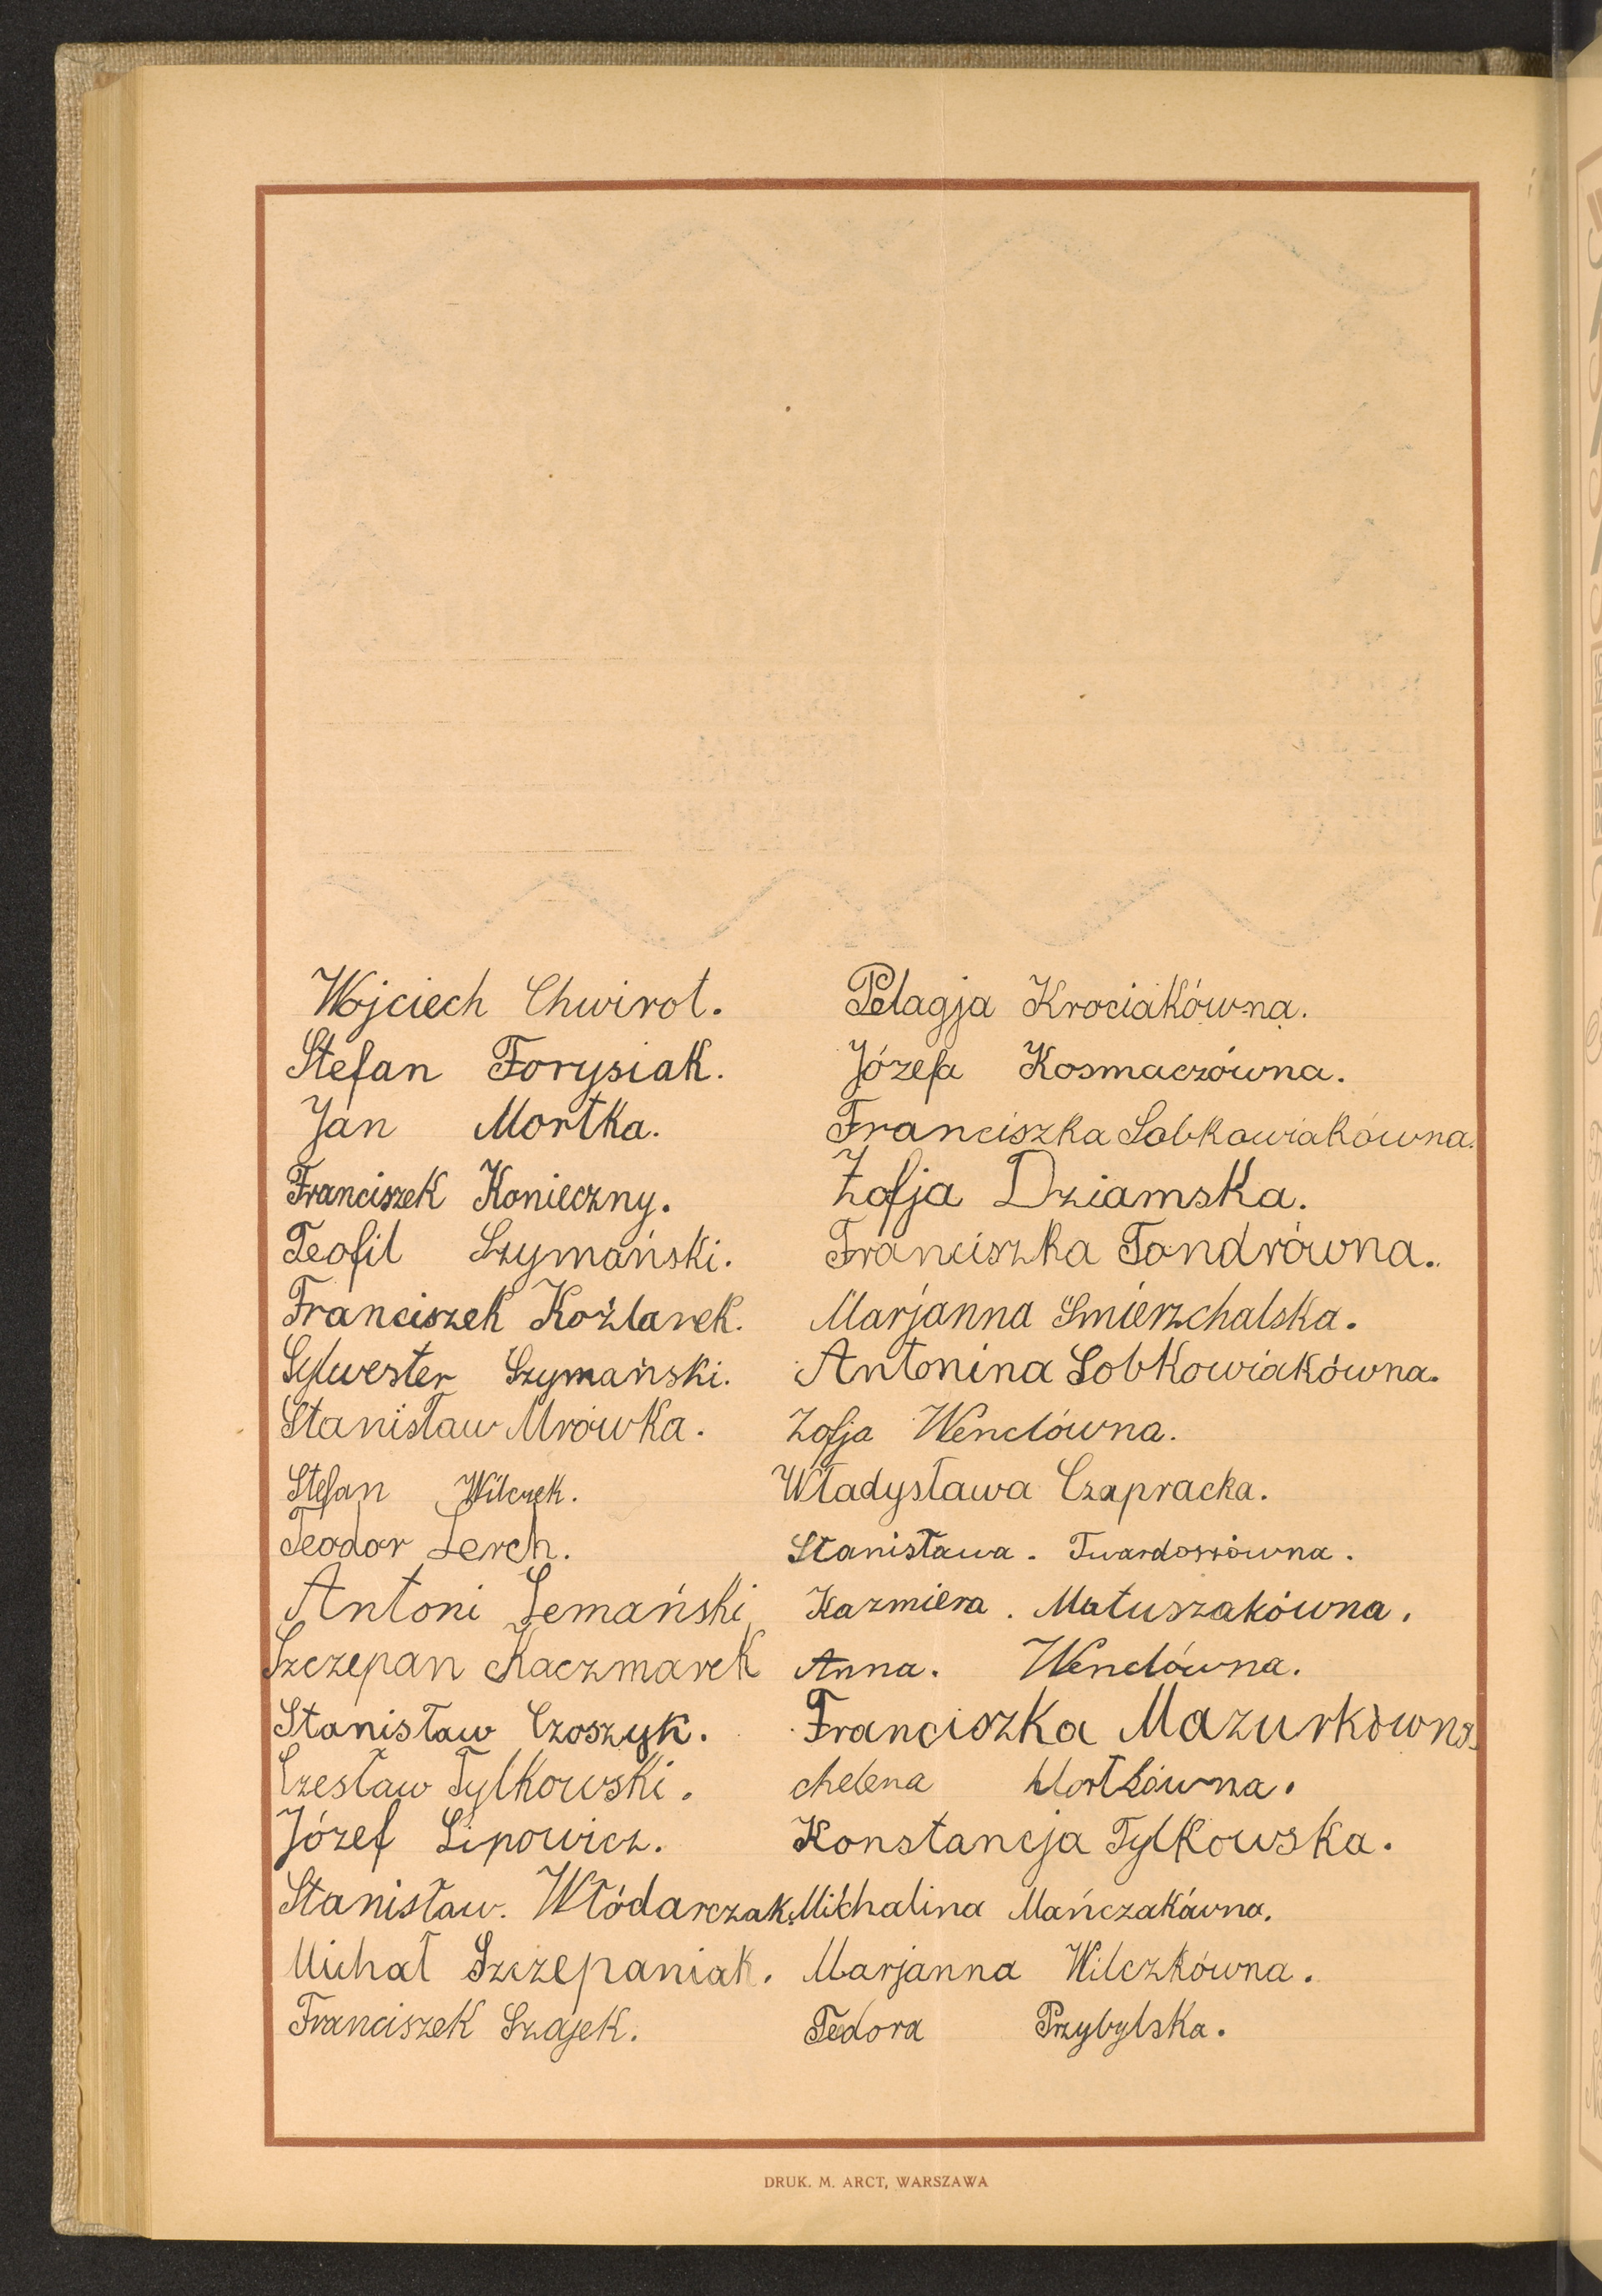 Wojciech Chwirot. Pelagja Krociakówna.
Stefan Forysiak. Józefa Kosmaczówna.
Jan Mortka. Franciszka Sobkowiakówna.
Franciszek Konieczny. Zofja Dziamska.
Teofil Szymański. Franciszka Tondrówna.
Franciszek Koźlarek. Marjanna Smierzchalska.
Sylwester Szymański. Antonina Sobkowiakówna.
Stanisław Mrówka. Zofja Wenclówna.
Stefan Wilczek. Władysława Czapracka.
Teodor Lerch. Stanisława. Twardoszówna.
Antoni Lemański Kazmiera. Matuszakówna.
Szczepan Kaczmarek Anna. Wenclówna.
Stanisław Czoszyk. Franciszka Mazurkówna.
Czesław Tylkowski. Helena Mortkówna.
Józef Lipowicz. Konstancja Tylkowska.
Stanisław. Włódarczak. Michalina Mańczakówna.
Michał Szczepaniak. Marjanna Wilczkówna.
Franciszek Szajek. Tedora Przybylska.
DRUK. M. ARCT, WARSZAWA